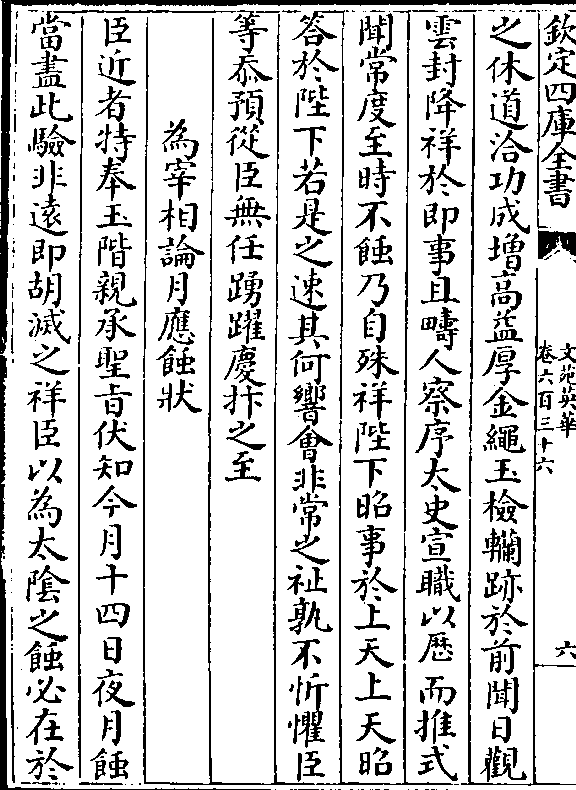 欽定四庫全書
文苑英華
卷六百三十六
六
之休道洽功成增高益厚金繩玉檢轥跡於前聞日觀
雲封降祥於即事且疇人察序太史宣職以厯而推式
聞常度至時不蝕乃自殊祥陛下昭事於上天上天昭
答於陛下若是之速其何響會非常之祉孰不忻懼臣
等忝預從臣無任踴躍慶抃之至
為宰相論月應蝕狀
臣近者特奉玉階親承聖㫖伏知今月十四日夜月蝕
當盡此驗非遠即胡滅之祥臣以為太陰之蝕必在於